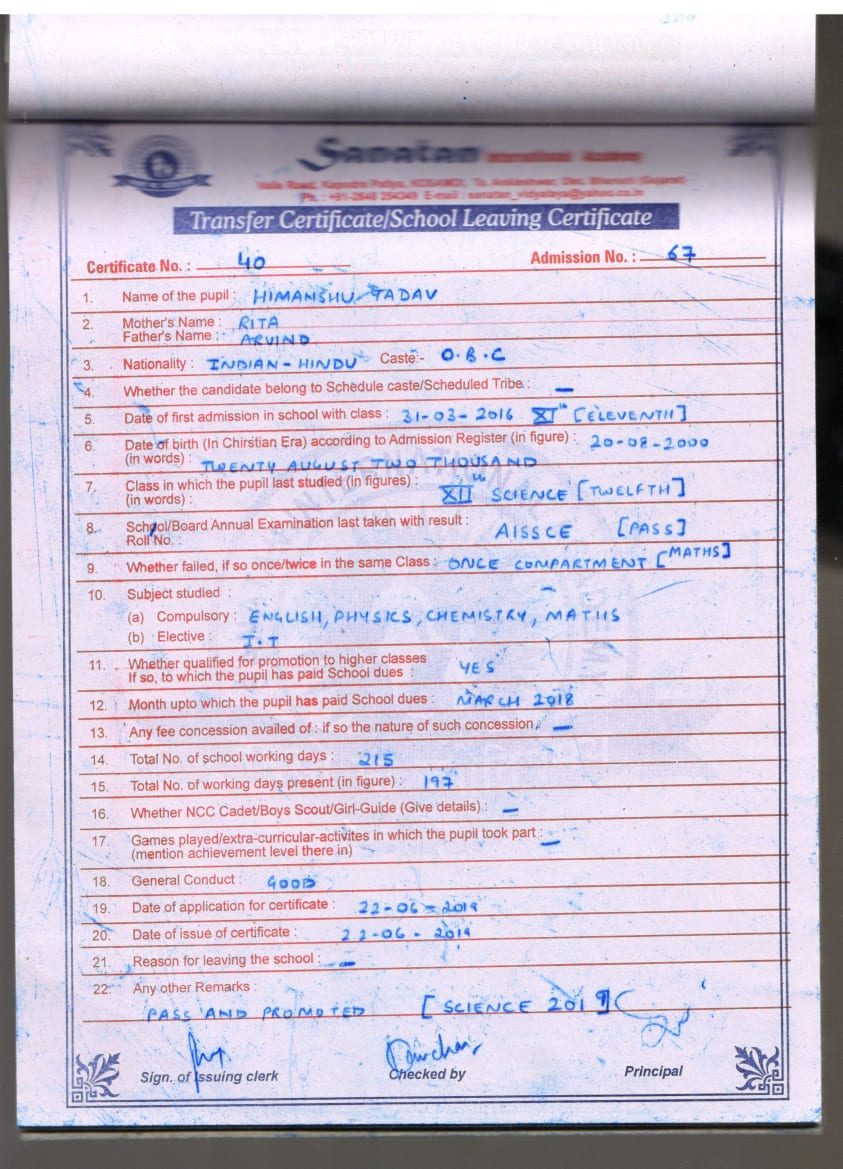 Sanatan International Academy
Valia Road, Kapodra Patiya, KOSAMDI, Ta. Ankleshwar, Dist. Bharuch (Gujarat)
Ph. : +91-2646 E-mail : sanatan_vidyalaya@yahoo.co.in
Transfer Certificate/School Leaving Certificate
Certificate No. : 40 Admission No. : 67
1. Name of the pupil : HIMANSHU YADAV
2. Mother's Name : RITA
Father's Name : ARVIND
3. Nationality : INDIAN - HINDU Caste:- O.B.C
4. Whether the candidate belong to Schedule caste/Scheduled Tribe : —
5. Date of first admission in school with class : 31-03-2016 XIth [ELEVENTH]
6. Date of birth (In Chirstian Era) according to Admission Register (in figure) : 20-08-2000
(in words) : TWENTY AUGUST TWO THOUSAND
7. Class in which the pupil last studied (in figures) : XIIth SCIENCE [TWELFTH]
(in words) :
8. School/Board Annual Examination last taken with result : AISSCE [PASS]
Roll No. :
9. Whether failed, if so once/twice in the same Class : ONCE COMPARTMENT [MATHS]
10. Subject studied :
(a) Compulsory : ENGLISH, PHYSICS, CHEMISTRY, MATHS
(b) Elective : I.T
11. Whether qualified for promotion to higher classes YES
If so, to which the pupil has paid School dues :
12. Month upto which the pupil has paid School dues : MARCH 2018
13. Any fee concession availed of : if so the nature of such concession : —
14. Total No. of school working days : 215
15. Total No. of working days present (in figure) : 197
16. Whether NCC Cadet/Boys Scout/Girl-Guide (Give details) : —
17. Games played/extra-curricular-activites in which the pupil took part : —
(mention achievement level there in)
18. General Conduct : GOOD
19. Date of application for certificate : 22-06-2019
20. Date of issue of certificate : 22-06-2019
21. Reason for leaving the school : —
22. Any other Remarks :
PASS AND PROMOTED [SCIENCE 2019]
Sign. of Issuing clerk Checked by Principal